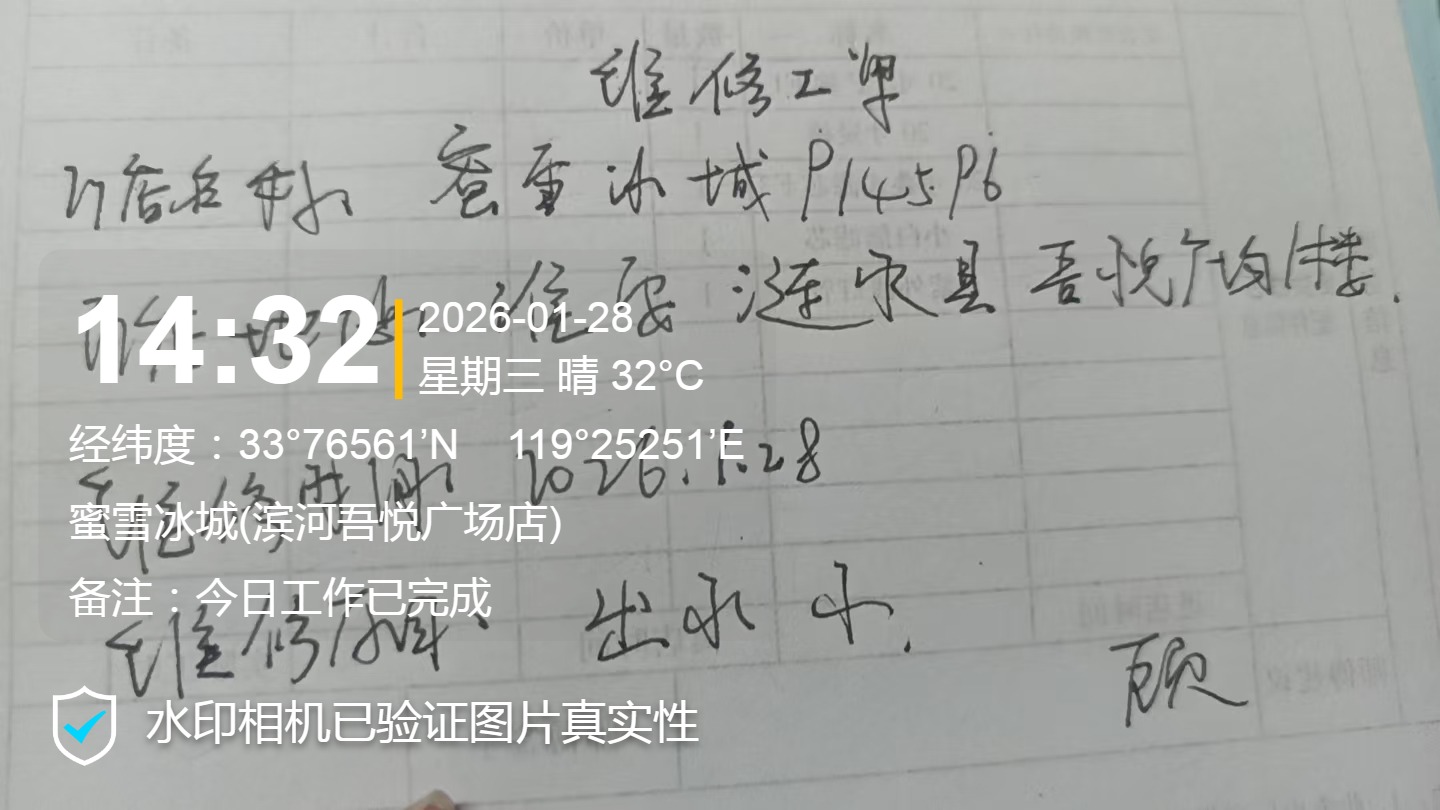 维修工单
门店名称: 蜜雪冰城 P145P6
门店地址: 淮安涟水县吾悦广场1楼.
14:32
2026-01-28
星期三 晴 32°C
经纬度：33°76561’N 119°25251’E
维修时间: 2026.1.28
蜜雪冰城(滨河吾悦广场店)
备注：今日工作已完成
维修原因: 出水小.
顾
水印相机已验证图片真实性